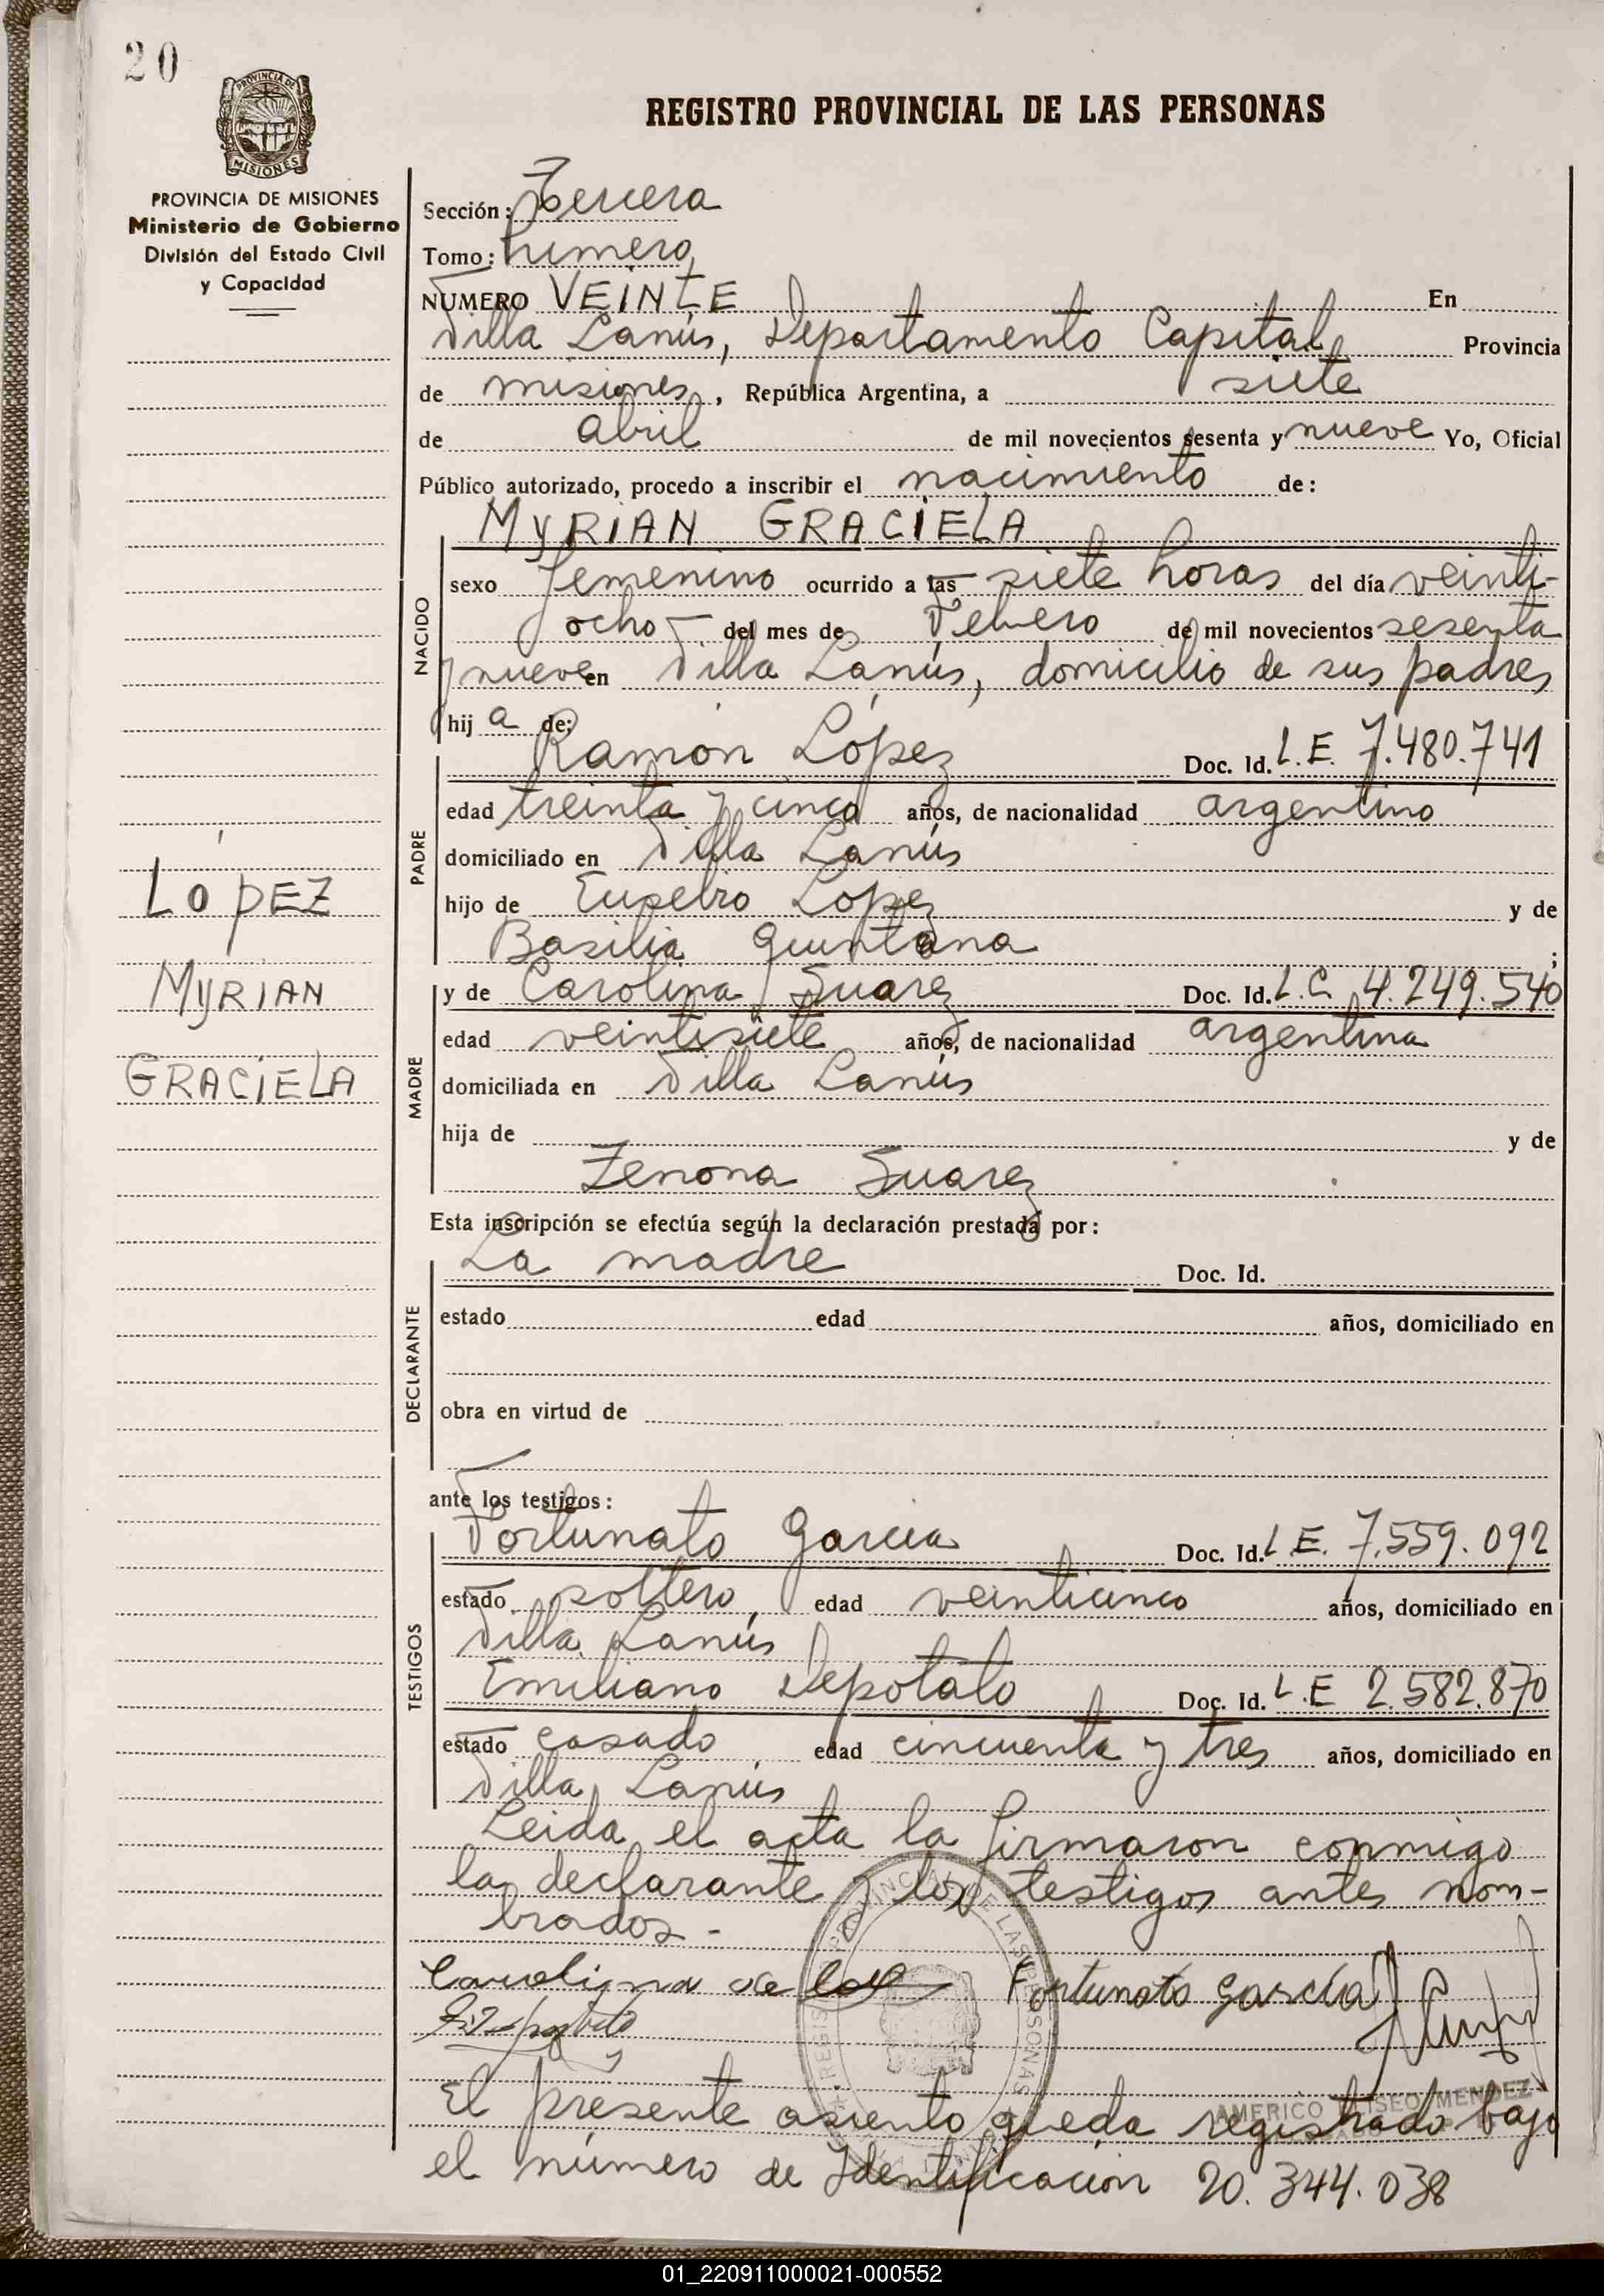 20
PROVINCIA DE
MISIONES
REGISTRO PROVINCIAL DE LAS PERSONAS
PROVINCIA DE MISIONES
Ministerio de Gobierno
División del Estado Civil
y Capacidad
Sección: Tercera
Tomo: Primero
NUMERO VEINTE En
Villa Lanús, Departamento Capital Provincia
de misiones, República Argentina, a siete
de abril de mil novecientos sesenta y nueve Yo, Oficial
Público autorizado, procedo a inscribir el nacimiento de:
MYRIAN GRACIELA
NACIDO
sexo femenino ocurrido a las siete horas del día veinti-
ocho del mes de Febrero de mil novecientos sesenta
y nueve en Villa Lanús, domicilio de sus padres
hij a de:
Ramón López Doc. Id. L.E. 7.480.741
PADRE
edad treinta y cinco años, de nacionalidad argentino
domiciliado en Villa Lanús
hijo de Eusebio López y de
Basilia Quintana ;
LOPEZ
MYRIAN
GRACIELA
MADRE
y de Carolina Suarez Doc. Id. L.C. 4.249.540
edad veintisiete años, de nacionalidad argentina
domiciliada en Villa Lanús
hija de y de
Zenona Suarez
Esta inscripción se efectúa según la declaración prestada por:
DECLARANTE
La madre Doc. Id.
estado edad años, domiciliado en
obra en virtud de
ante los testigos:
TESTIGOS
Fortunato Garcia Doc. Id. L.E. 7.559.092
estado soltero, edad veinticinco años, domiciliado en
Villa Lanús
Emiliano Depotato Doc. Id. L.E 2.582.870
estado casado edad cincuenta y tres años, domiciliado en
Villa Lanús
Leida el acta la firmaron conmigo
la declarante y los testigos antes nom-
brados -
Carolina de Fortunato Garcia
REGISTRO PROVINCIAL DE LAS PERSONAS
AMERICO ELISEO MENDEZ
El presente asiento queda registrado bajo
el número de Identificación 20.344.038
01_220911000021-000552